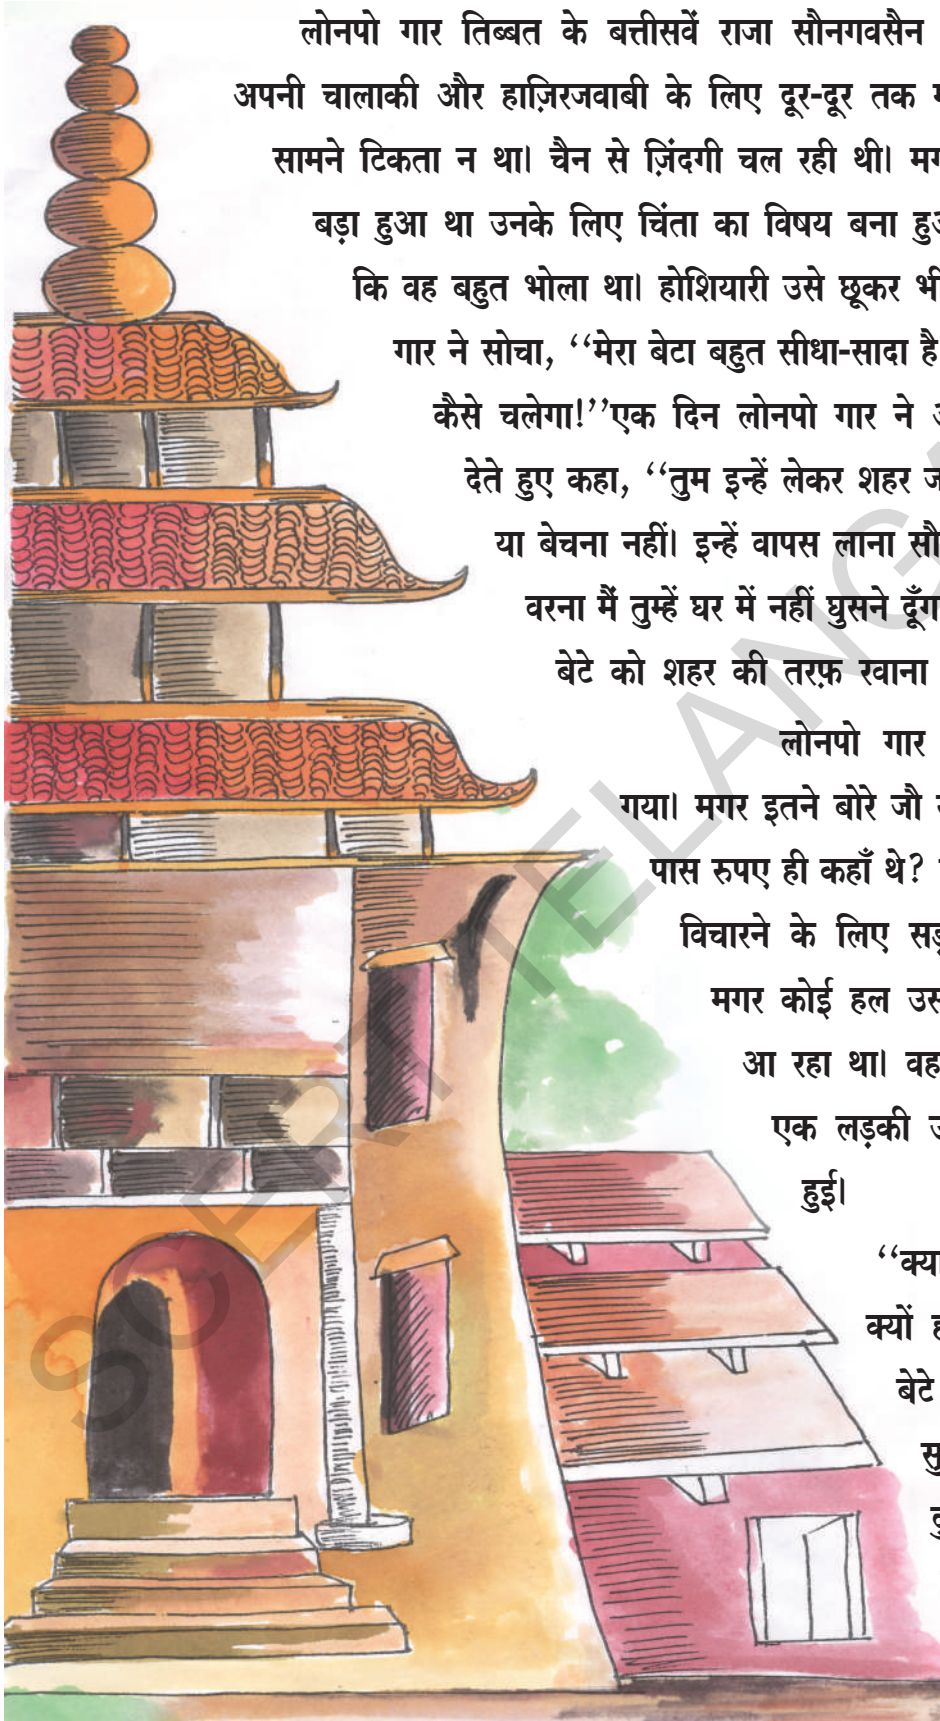 लोनपो गार तिब्बत के बत्तीसवें राजा सौनगवसैन
अपनी चालाकी और हाज़िरजवाबी के लिए दूर-दूर तक
सामने टिकता न था। चैन से ज़िंदगी चल रही थी।
बड़ा हुआ था उनके लिए चिंता का विषय बना
कि वह बहुत भोला था। होशियारी उसे छूकर
गार ने सोचा, ‘‘मेरा बेटा बहुत सीधा-सादा है
कैसे चलेगा!’’एक दिन लोनपो गार ने
देते हुए कहा, ‘‘तुम इन्हें लेकर शहर
या बेचना नहीं। इन्हें वापस लाना
वरना मैं तुम्हें घर में नहीं घुसने
बेटे को शहर की तरफ़ रवाना
लोनपो गार
गया। मगर इतने बोरे जौ
पास रुपए ही कहाँ थे?
विचारने के लिए
मगर कोई हल
आ रहा था। वह
एक लड़की
हुई।
‘‘क्या
क्यों
बेटे
SCERT TELANGA